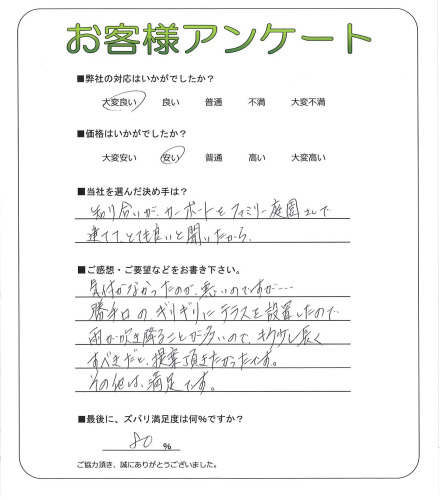 お客様アンケート
■弊社の対応はいかがでしたか?
大変良い 良い 普通 不満 大変不満
■価格はいかがでしたか?
大変安い 安い 普通 高い 大変高い
■当社を選んだ決め手は?
知り合いが、カーポートをファミリー庭園さんで
建てて、とても良いと聞いたから。
■ご感想・ご要望などをお書き下さい。
気付かなかったのが、悪いのですが…
勝手口のギリギリにテラスを設置したので
雨が吹き降ることが多いので、もう少し長く
すべきだと、提案頂きたかったです。
その他は、満足です。
■最後に、ズバリ満足度は何%ですか?
80 %
ご協力頂き、誠にありがとうございました。